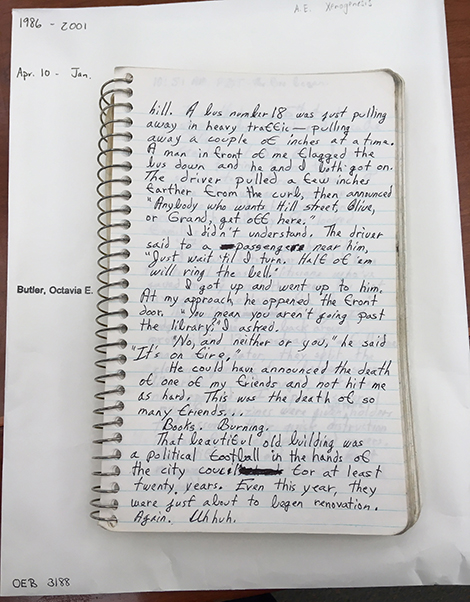 A.E. Xenogenesis
1986 - 2001
Apr. 10 - Jan.
hill. A bus number 18 was just pulling
away in heavy traffic — pulling
away a couple of inches at a time.
A man in front of me flagged the
bus down and he and I both got on.
The driver pulled a few inches
farther from the curb, then announced
"Anybody who wants Hill street, Olive,
or Grand, get off here."
I didn't understand. The driver
said to a passenger near him,
"Just wait 'til I turn. Half of 'em
will ring the bell."
Butler, Octavia E.
I got up and went up to him.
At my approach he oppened the front
door. "You mean you aren't going past
the library," I asked.
"No, and neither or you," he said
"It's on fire."
He could have announced the death
of one of my friends and not hit me
as hard. This was the death of so
many friends...
Books. Burning.
That beautiful old building was
a political football in the hands of
the city council for at least
twenty years. Even this year, they
were just about to begen renovation.
Again. Uhhuh.
OEB 3188